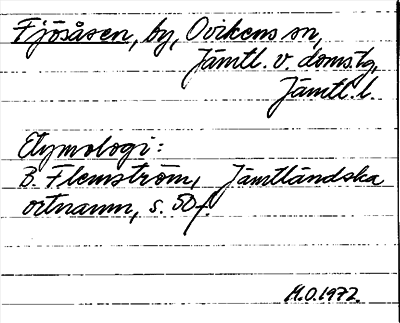 Fjösåsen, by, Ovikens sn,
Jämtl. v. domsg,
Jämtl. l.
Etymologi:
B. Flemström, Jämtländska
ortnamn, s. 50 f.
M.O.1972.